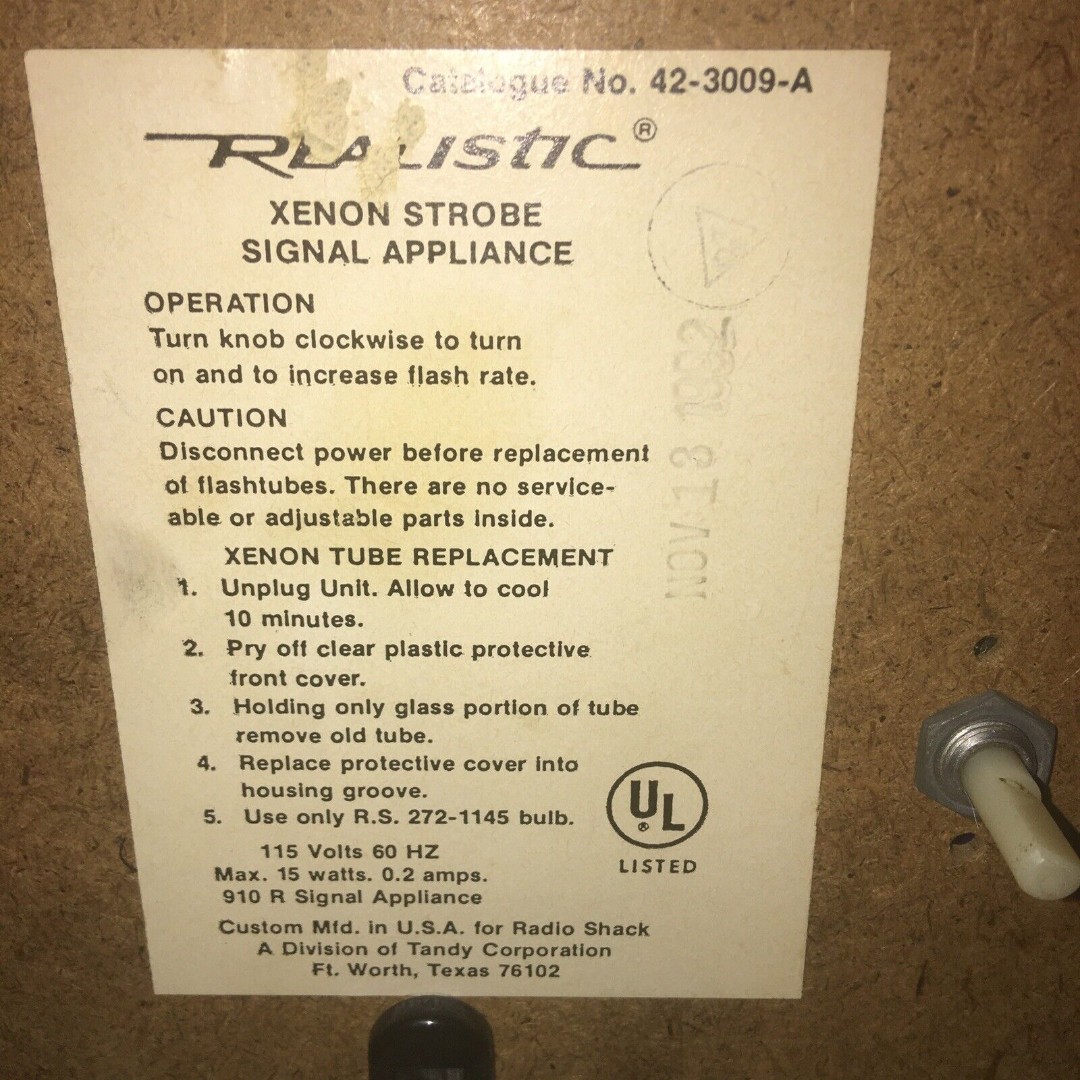 Catalogue No. 42-3009-A
REALISTIC®
XENON STROBE
SIGNAL APPLIANCE
OPERATION
Turn knob clockwise to turn
on and to increase flash rate.
CAUTION
Disconnect power before replacement
of flashtubes. There are no service-
able or adjustable parts inside.
XENON TUBE REPLACEMENT
1. Unplug Unit. Allow to cool
10 minutes.
2. Pry off clear plastic protective
front cover.
3. Holding only glass portion of tube
remove old tube.
4. Replace protective cover into
housing groove.
5. Use only R.S. 272-1145 bulb.
115 Volts 60 HZ
Max. 15 watts. 0.2 amps.
910 R Signal Appliance
Custom Mfd. in U.S.A. for Radio Shack
A Division of Tandy Corporation
Ft. Worth, Texas 76102
UL®
LISTED
NOV 18